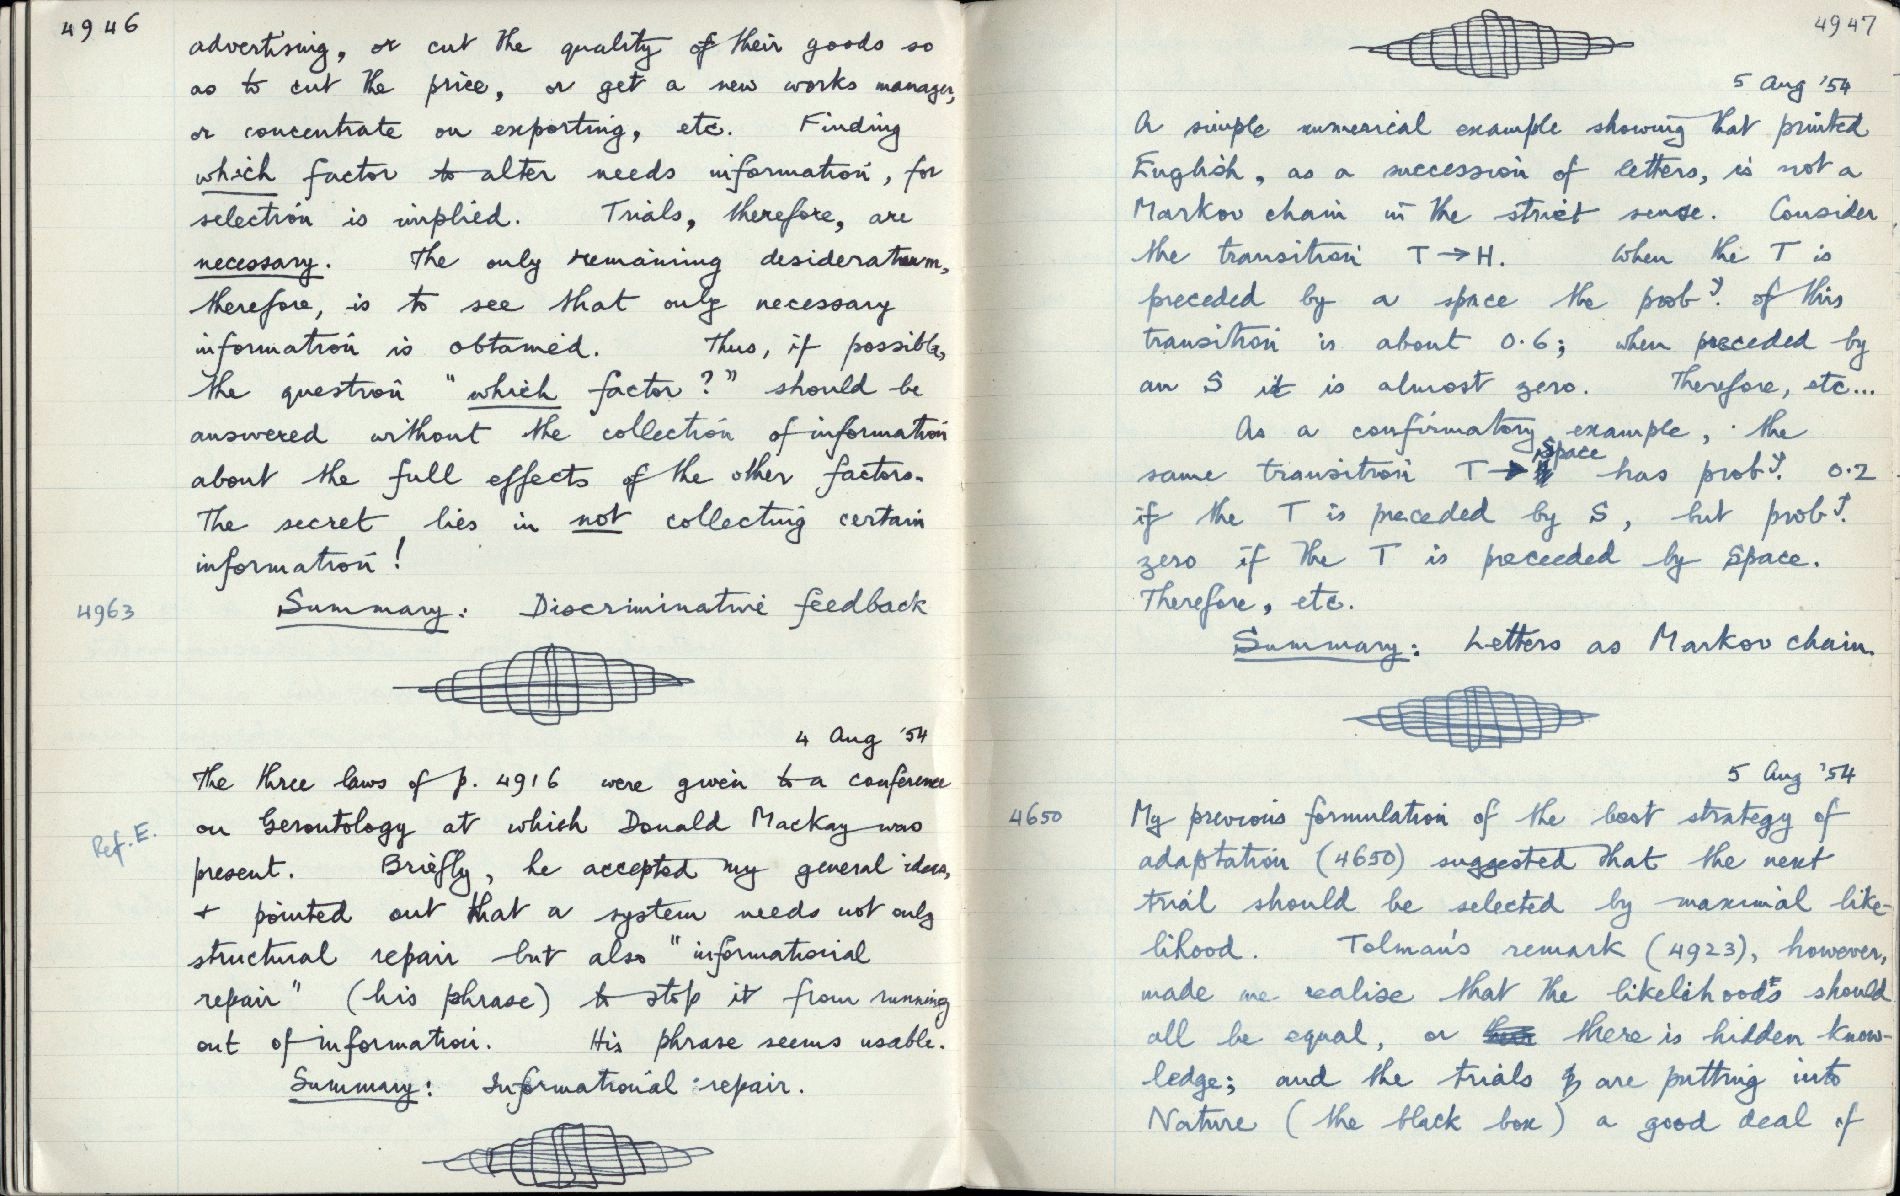 4946
advertising, or cut the quality of their goods so
as to cut the price, or get a new works manager,
or concentrate on exporting, etc. Finding
which factor to alter needs information, for
selection is implied. Trials, therefore, are
necessary. The only remaining desideratum,
therefore, is to see that only necessary
information is obtained. Thus, if possible,
the question "which factor?" should be
answered without the collection of information
about the full effects of the other factors.
The secret lies in not collecting certain
information!
4963
Summary: Discriminative feedback
4 Aug '54
The three laws of p. 4916 were given to a conference
Ref. E.
on Gerontology at which Donald Mackay was
present. Briefly, he accepted my general ideas,
+ pointed out that a system needs not only
structural repair but also "informational
repair" (his phrase) to stop it from running
out of information. His phrase seems usable.
Summary: Informational repair.
4947
5 Aug '54
A simple numerical example showing that printed
English, as a succession of letters, is not a
Markov chain in the strict sense. Consider
the transition T → H. When the T is
preceded by a space the prob.y of this
transition is about 0.6; when preceded by
an S it is almost zero. Therefore, etc...
As a confirmatory example, the
same transition T → Space has prob.y 0.2
if the T is preceded by S, but prob.y
zero if the T is preceeded by Space.
Therefore, etc.
Summary: Letters as Markov chain.
5 Aug '54
4650
My previous formulation of the best strategy of
adaptation (4650) suggested that the next
trial should be selected by maximal like-
lihood. Tolman's remark (4923), however,
made me realise that the likelihoods should
all be equal, or there is hidden know-
ledge; and the trials are putting into
Nature (the black box) a good deal of